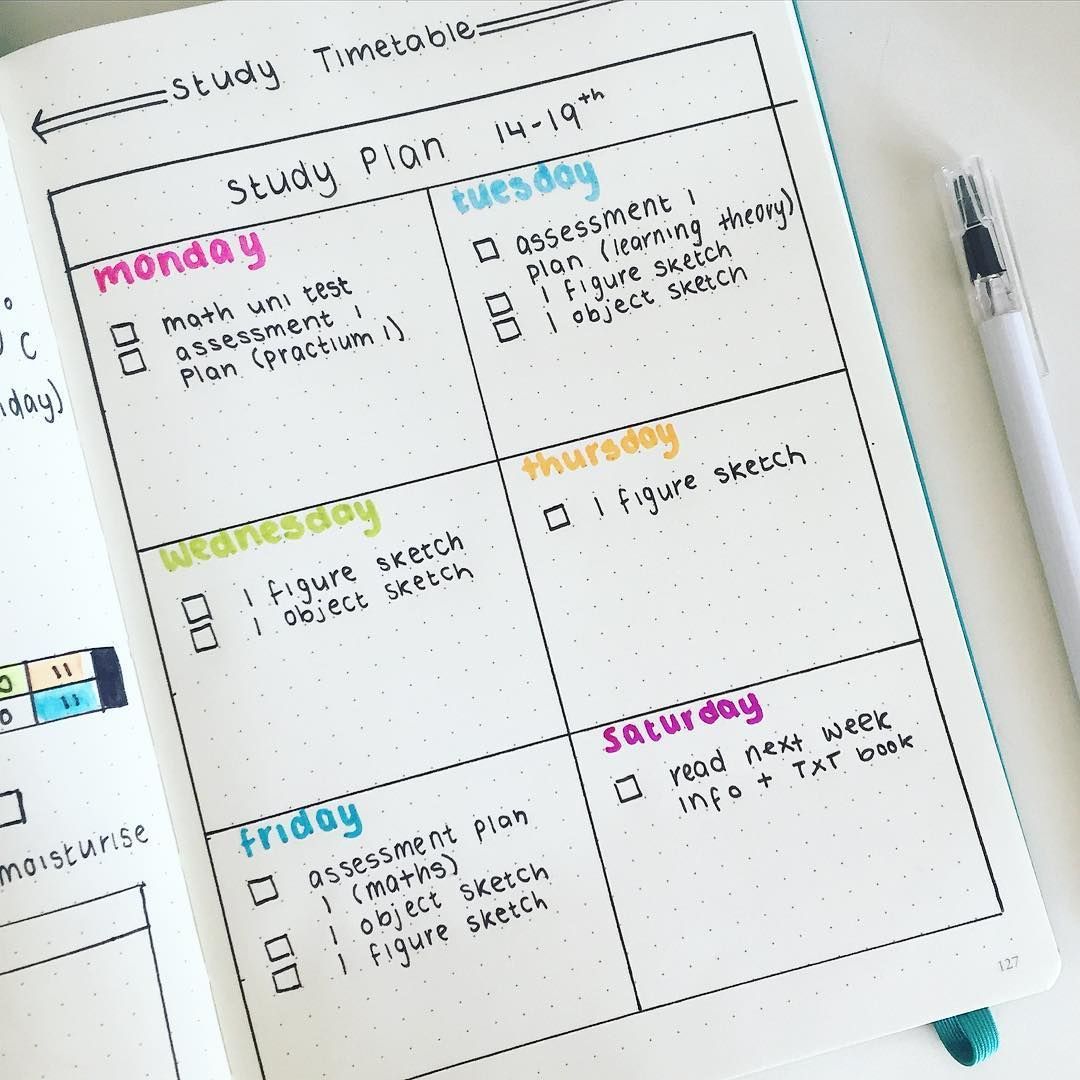 Study Timetable
Study Plan 14-19th
monday
math uni test
assessment 1
Plan (practium 1)
tuesday
assessment 1
plan (learning theory)
1 figure sketch
1 object sketch
wednesday
1 figure sketch
1 object sketch
thursday
1 figure sketch
friday
assessment plan
1 (maths)
1 object sketch
1 figure sketch
saturday
read next week
info + TxT book
127
C
11
11
moisturise